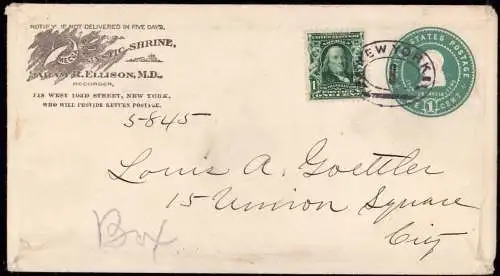 NOTIFY, IF NOT DELIVERED IN FIVE DAYS.
MECCA
MYSTIC SHRINE,
SARAM R. ELLISON, M.D.,
RECORDER,
118 WEST 103D STREET, NEW YORK,
WHO WILL PROVIDE RETURN POSTAGE.
NEW YORK
STATES POSTAGE
1 CENT
5845
Louis A. Goettler
15 Union Square
City
Box